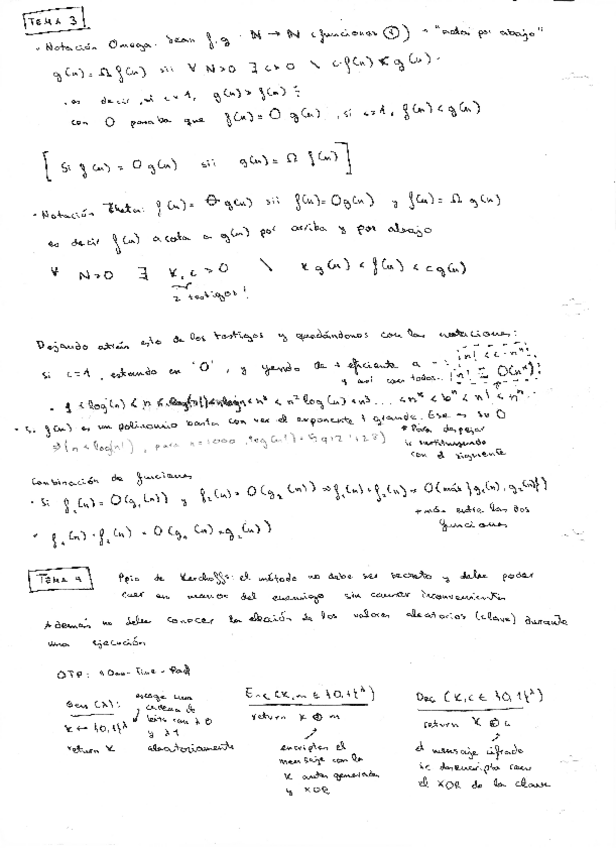 TEMA 3
· Notación Omega. Sean f, g: N → N (funciones ④) → "acota por abajo"
g(n) = Ω f(n) sii ∀ N>0 ∃ c>0 \ c·f(n) < g(n).
· es decir, si c=1, g(n) > f(n)
con O pasaba que f(n) = O g(n), si c=1, f(n) < g(n)
[ Si f(n) = O g(n) sii g(n) = Ω f(n) ]
· Notación Theta: f(n) = Θ g(n) sii f(n) = O g(n) y f(n) = Ω g(n)
es decir f(n) acota a g(n) por arriba y por abajo
∀ N>0 ∃ K, c > 0 \ K g(n) < f(n) < c g(n)
2 testigos!
Dejando atrás esto de los testigos y quedándonos con las notaciones:
si c=1, estando en 'O', y yendo de + eficiente a -:
n! < c · nⁿ
n! = O(nⁿ)
y así con todos.
· 1 < log(n) < n
· Si f(n) es un polinomio basta con ver el exponente + grande. Ese es su O
* Para despejar
ir sustituyendo
con el siguiente
Combinación de funciones
· Si f₁(n) = O(g₁(n)) y f₂(n) = O(g₂(n)) ⇒ f₁(n) + f₂(n) = O(máx{g₁(n), g₂(n)})
→ máx entre las dos
funciones
· f₁(n) · f₂(n) = O(g₁(n) × g₂(n))
TEMA 4
Ppio de Kerchoffs: el método no debe ser secreto y debe poder
caer en manos del enemigo sin causar inconvenientes
Además no debe conocer la elección de los valores aleatorios (clave) durante
una ejecución
OTP: One-Time-Pad
Gen(λ):
K ← {0,1}^λ
return K
escoge una
cadena de
bits con λ 0
y λ 1
aleatoriamente
Enc(K, m ∈ {0,1}^λ)
return K ⊕ m
encripta el
mensaje con la
K antes generada
y XOR
Dec(K, c ∈ {0,1}^λ)
return K ⊕ c
el mensaje cifrado
se desencripta con
el XOR de la clave